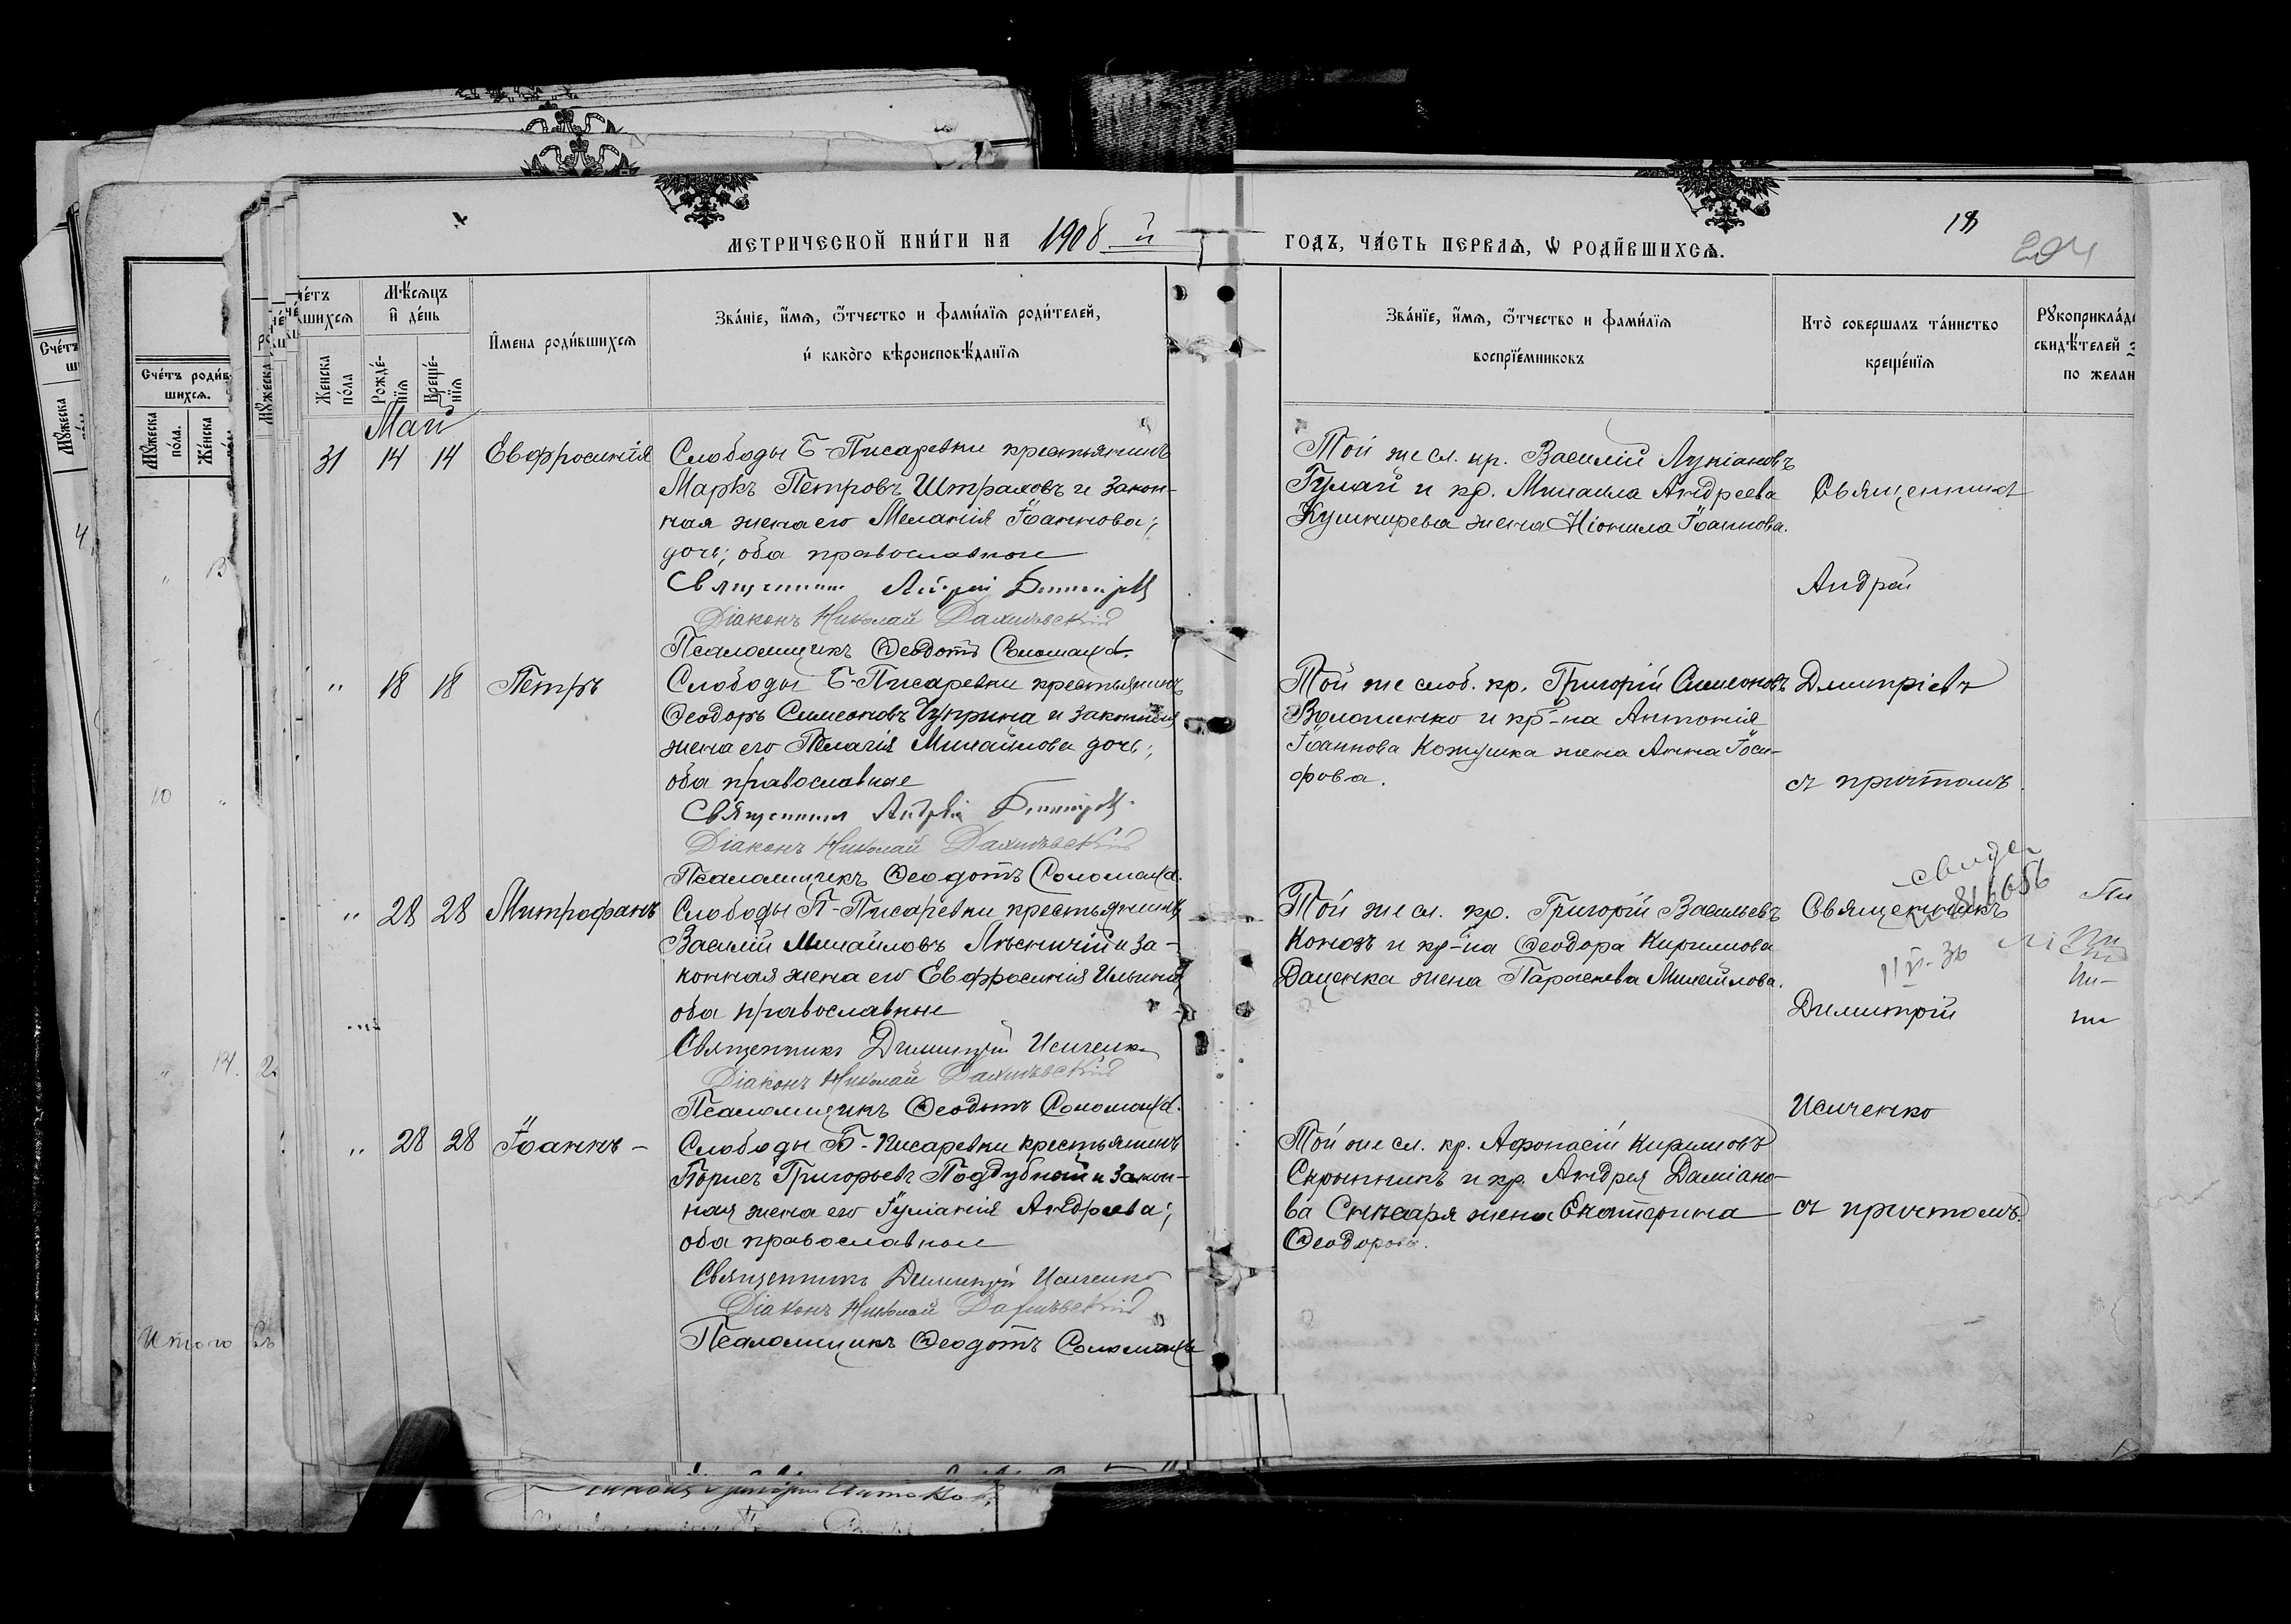 МЕТРИЧЕСКОЙ КНИ́ГИ НА 1908 й
ГОДЪ, ЧА́СТЬ ПЕРВАѦ, Ѡ РОДИ́ВШИХСѦ.
18
204
Счётъ родив-
шихсѧ.
Мꙋжеска
по́ла.
Же́нска
Женска
по́ла
Мѣ́сѧцъ
и҆ де́нь
Рожде́-
нїѧ
Креще́-
нїѧ
И҆мена роди́вшихсѧ
Зва́нїе, и҆́мѧ, ѻ҆́тчество и фами́лїѧ роди́телей,
и҆ како́го вѣроисповѣ́данїѧ
Зва́нїе, и҆́мѧ, ѻ҆́тчество и фами́лїѧ
воспрїе́мниковъ
Кто̀ совершалъ та́инство
креще́нїѧ
Рꙋкоприкла́д
свидѣ́телей
по желан
Май
31 14 14 Евфросинія
Слободы Б-Писаревки крестьянинъ
Маркъ Петровъ Штраховъ и закон-
ная жена его Меланія Іоаннова;
дочь; оба православные
Священникъ Андрей
Діаконъ Николай
Псаломщикъ Ѳеодотъ Соломаха.
Той же сл. кр. Василій Лукіановъ
Гулай и кр. Михаила Андреева
Кушнирева жена Неонила Іоаннова.
Священникъ
Андрей
" 18 18 Петръ
Слободы Б-Писаревки крестьянинъ
Ѳеодоръ Симеоновъ Чуприна и законная
жена его Пелагія Михайлова дочь;
оба православные
Священникъ Андрей
Діаконъ Николай
Псаломщикъ Ѳеодотъ Соломаха.
Той же слоб. кр. Григорій Симеоновъ
Волошенко и кр-на Антонія
Іоаннова Кожушка жена Анна Іоси-
фова.
Дмитріевъ
съ причтомъ.
" 28 28 Митрофанъ
Слободы Б-Писаревки крестьянинъ
Василій Михайловъ Лѣсничій и за-
конная жена его Евфросинія Ильина
оба православные
Священникъ Димитрій Исиченко
Діаконъ Николай
Псаломщикъ Ѳеодотъ Соломаха.
Той же сл. кр. Григорій Васильевъ
Конозъ и кр-на Ѳеодора Кириллова
Даценка жена Параскева Михайлова.
Священникъ
Димитрій
Исиченко
" 28 28 Іоаннъ -
Слободы Б-Писаревки крестьянинъ
Борисъ Григорьевъ Поддубный и закон-
ная жена его Іуліанія Андреева;
оба православные
Священникъ Димитрій Исиченко
Діаконъ Николай
Псаломщикъ Ѳеодотъ Соломаха
Той же сл. кр. Афонасій Кириловъ
Скрынникъ и кр. Андрея Даміано-
ва жена Екатерина
Ѳеодорова.
съ причтомъ.
Итого